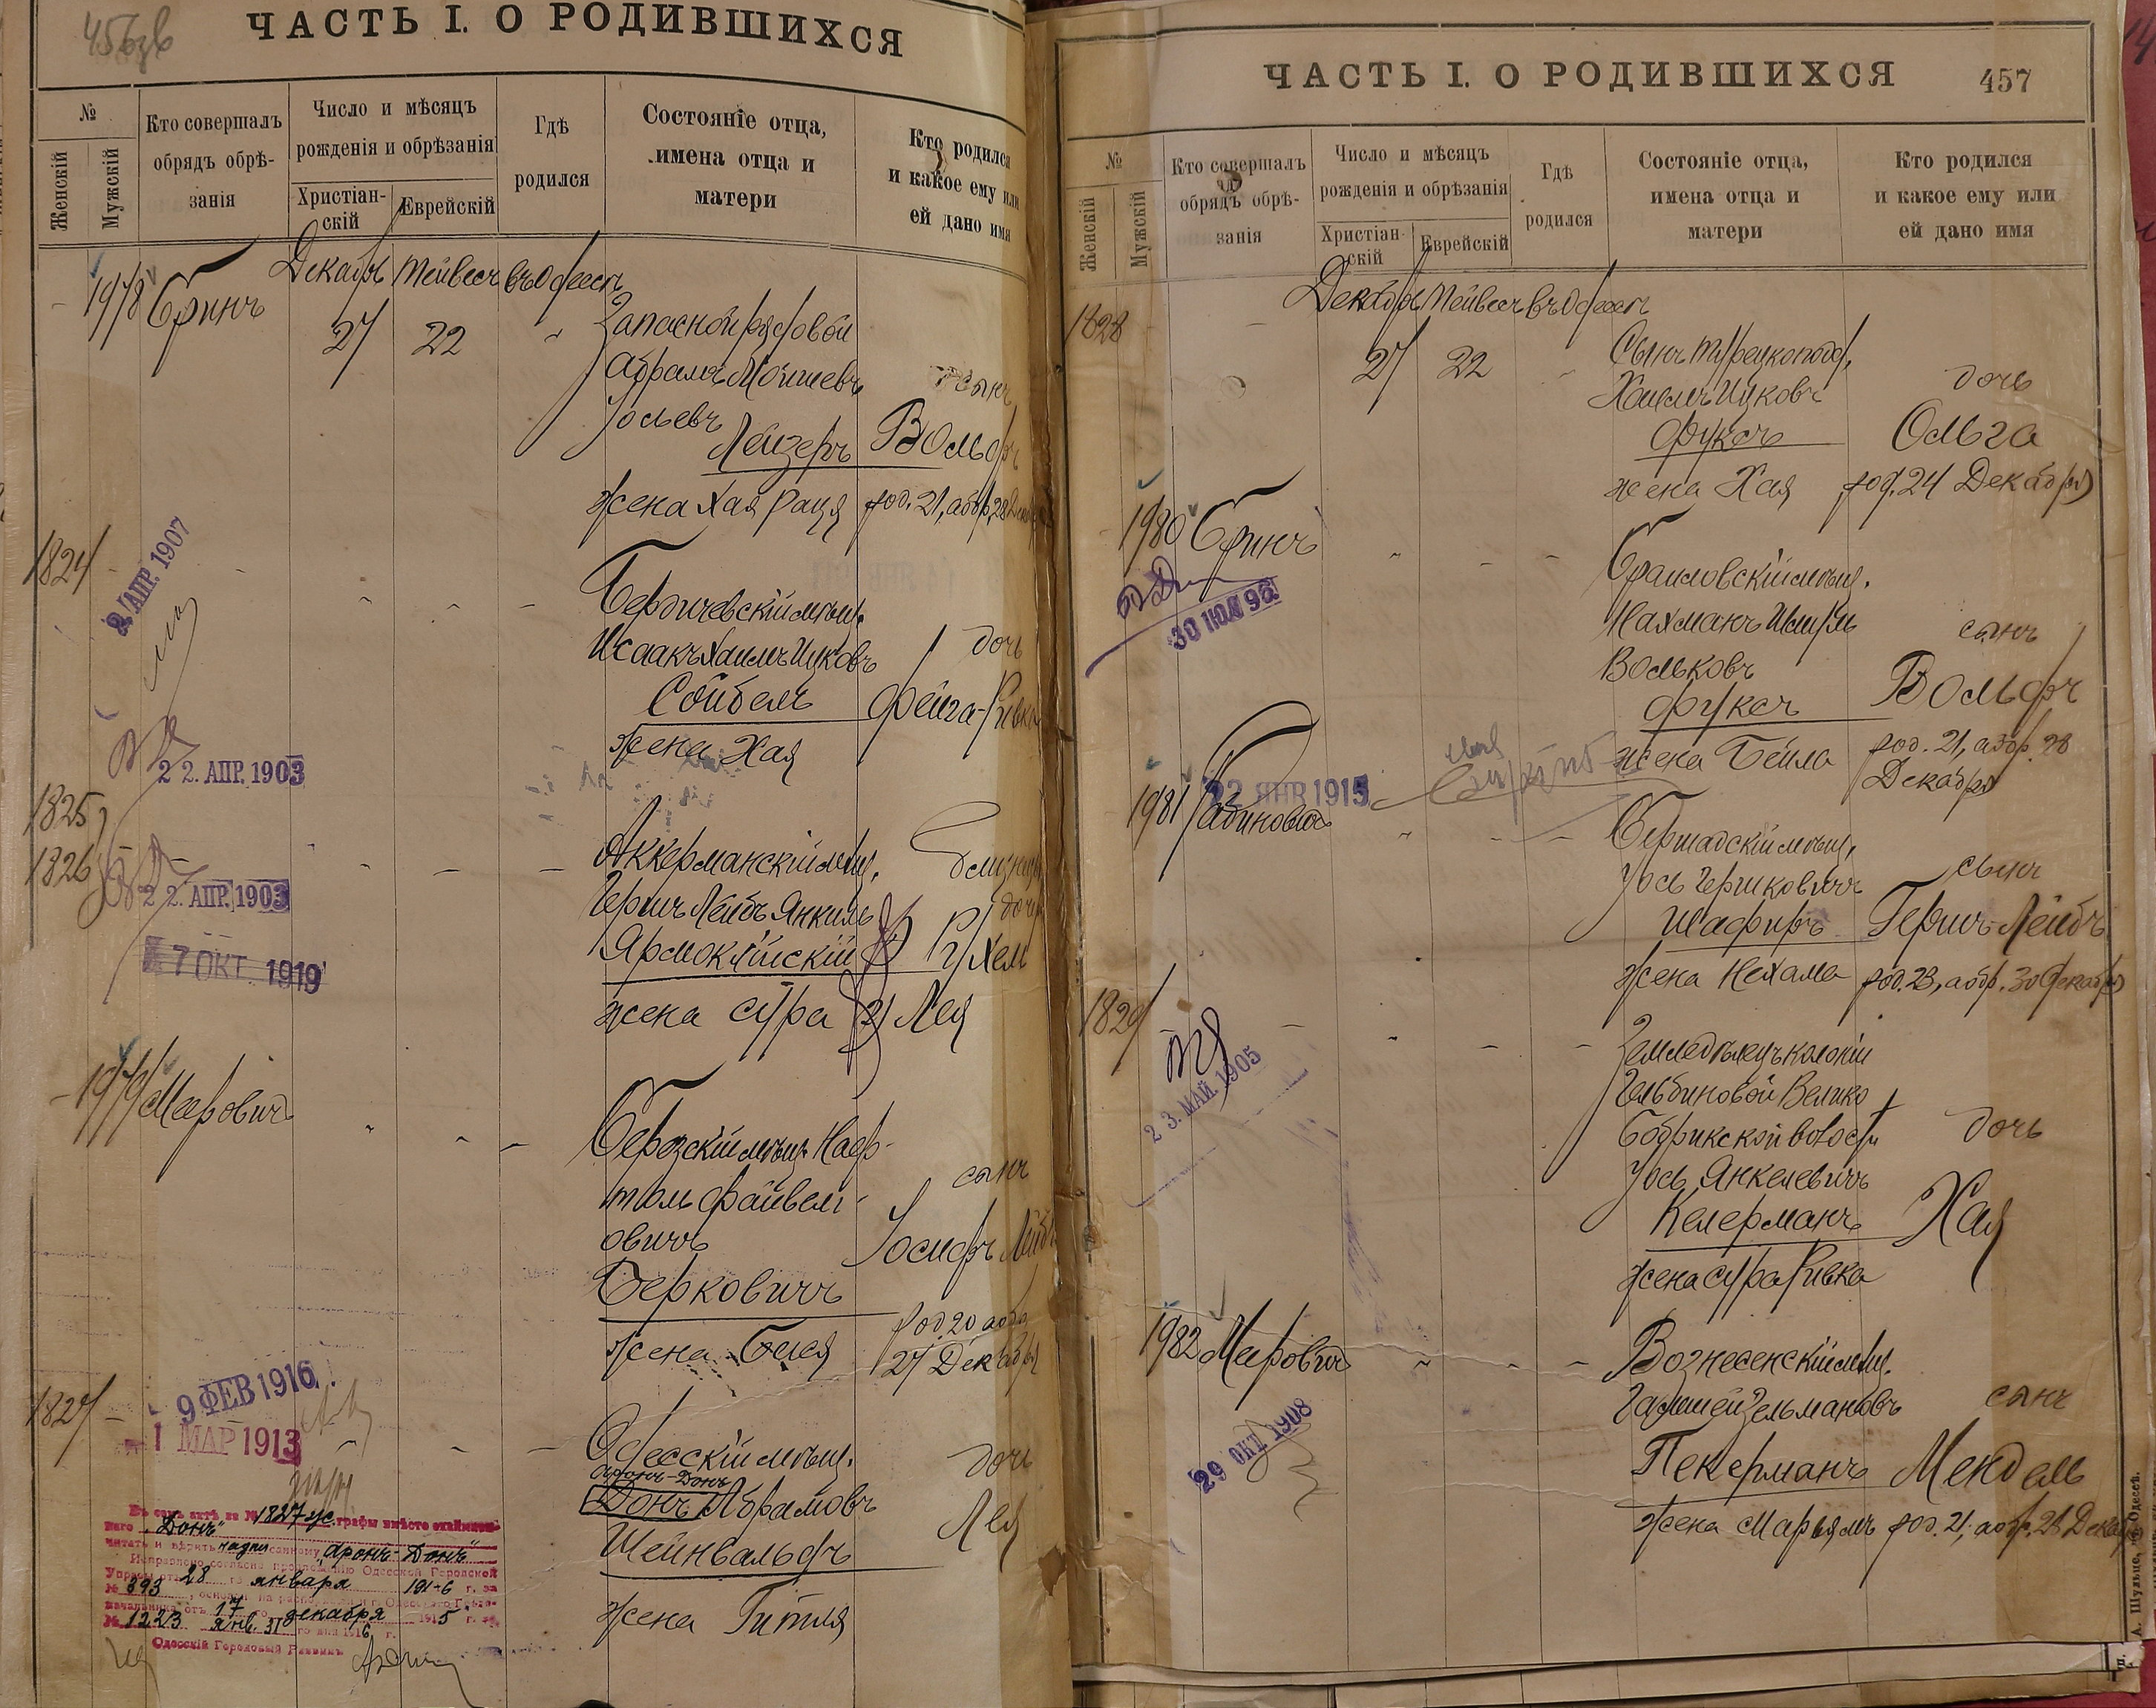 456 об
ЧАСТЬ I. О РОДИВШИХСЯ
№
Женскій
Мужскій
Кто совершалъ
обрядъ обрѣ-
занія
Число и мѣсяцъ
рожденія и обрѣзанія
Христіан-
скій
Еврейскій
Гдѣ
родился
Состояніе отца,
имена отца и
матери
Кто родился
и какое ему или
ей дано имя
Декабрь Тейвесъ въ Одессѣ
1978 Гринъ
27 22
Запасной рядовой
Абрамъ Мошковъ
Іосьевъ
Лейзеръ
жена Хая Рация
сынъ
Вольфъ
род. 21, обр. 28 Дек
1824
2 АПР. 1907
Бердичевскій мѣщ.
Исаакъ Хаимъ Ицковъ
Сойбель
жена Хая
дочь
Фейга-Ривка
22. АПР. 1903
1825
1826
22. АПР. 1903
7 ОКТ. 1919
Аккерманскій мѣщ.
Гершъ Лейбъ Янкель
Ярмоклійскій
жена Сура
близнецы
дочери
1) Рухель
2) Лея
1979 Меровичъ
Нафтоль Файвел-
овичъ
Берковичъ
жена Бися
сынъ
Іосифъ Лейбъ
род. 20 обр.
27 Декабря
1827
9 ФЕВ 1916
1 МАР 1913
Одесскій мѣщ.
Аронъ-Донъ
Донъ Абрамовъ
Шейнвальдъ
жена Гитля
дочь
Лея
Въ семъ актѣ за № 1827 ж. графы вмѣсто
"Донъ"
читать и вѣрить надписанному "Аронъ-Донъ"
Исправлено согласно предложенію Одесской Городской
Управы отъ 28 января 1916 г. за
№ 393
17 декабря 1915 г. за
№ 1223 Янв. 31 дня 1916 г.
Одесскій Городовый Раввинъ
ЧАСТЬ I. О РОДИВШИХСЯ
457
№
Женскій
Мужскій
Кто совершалъ
обрядъ обрѣ-
занія
Число и мѣсяцъ
рожденія и обрѣзанія
Христіан-
скій
Еврейскій
Гдѣ
родился
Состояніе отца,
имена отца и
матери
Кто родился
и какое ему или
ей дано имя
Декабрь Тейвесъ въ Одессѣ
1828
27 22
Сынъ турецкопод.
Хаимъ Ицковъ
Фуксъ
жена Хая
дочь
Ольга
род. 24 Декабря
1980 Гринъ
30 ІЮЛ 96
Браиловскій мѣщ.
Нахманъ Шмуль
Вольковъ
Фуксъ
жена Бейла
сынъ
Вольфъ
род. 21, обр. 28
Декабря
1981 Рабиновичъ
22 ЯНВ 1915
Бершадскій мѣщ.
Іось Гершковичъ
Шафиръ
жена Нехама
сынъ
Гершъ-Лейбъ
род. 23, обр. 30 Декабря
1829
23. МАЙ. 1905
Земледѣлецъ колоніи
Гельбиновой Велико
Бобрикской волости
Іось Янкелевичъ
Келерманъ
жена Сура Ривка
дочь
Хая
1982 Меровичъ
29 ОКТ 1908
Вознесенскій мѣщ.
Зельмановъ
Пекерманъ
жена Марьямъ
сынъ
Мендель
род. 21, обр. 28 Декаб
А. Шульце, въ Одессѣ.